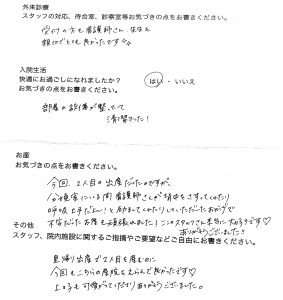 外来診療
スタッフの対応、待合室、診察室等お気づきの点をお書きください。
受付の方も看護師さん、先生も
親切でとても良かったです
入院生活
快適にお過ごしになれましたか? はい ・ いいえ
お気づきの点をお書きください。
部屋の設備が整っていて
清潔でした!
お産
お気づきの点をお書きください。
今回、2人目の出産だったのですが、
分娩室にいる間看護師さんが背中をさすってくれたり
呼吸上手だよ〜!と励ましてくれたりしていただいたおかげで
不安だったお産も頑張れました!このスタッフさん本当に大好きです♡
ありがとうございました!!
その他
スタッフ、院内施設に関するご指摘やご要望などご自由にお書きください。
里帰り出産で2人目を産むのに
今回もこちらの産院をえらんで良かったです♡
上の子も可愛がってくださりありがとうございました。